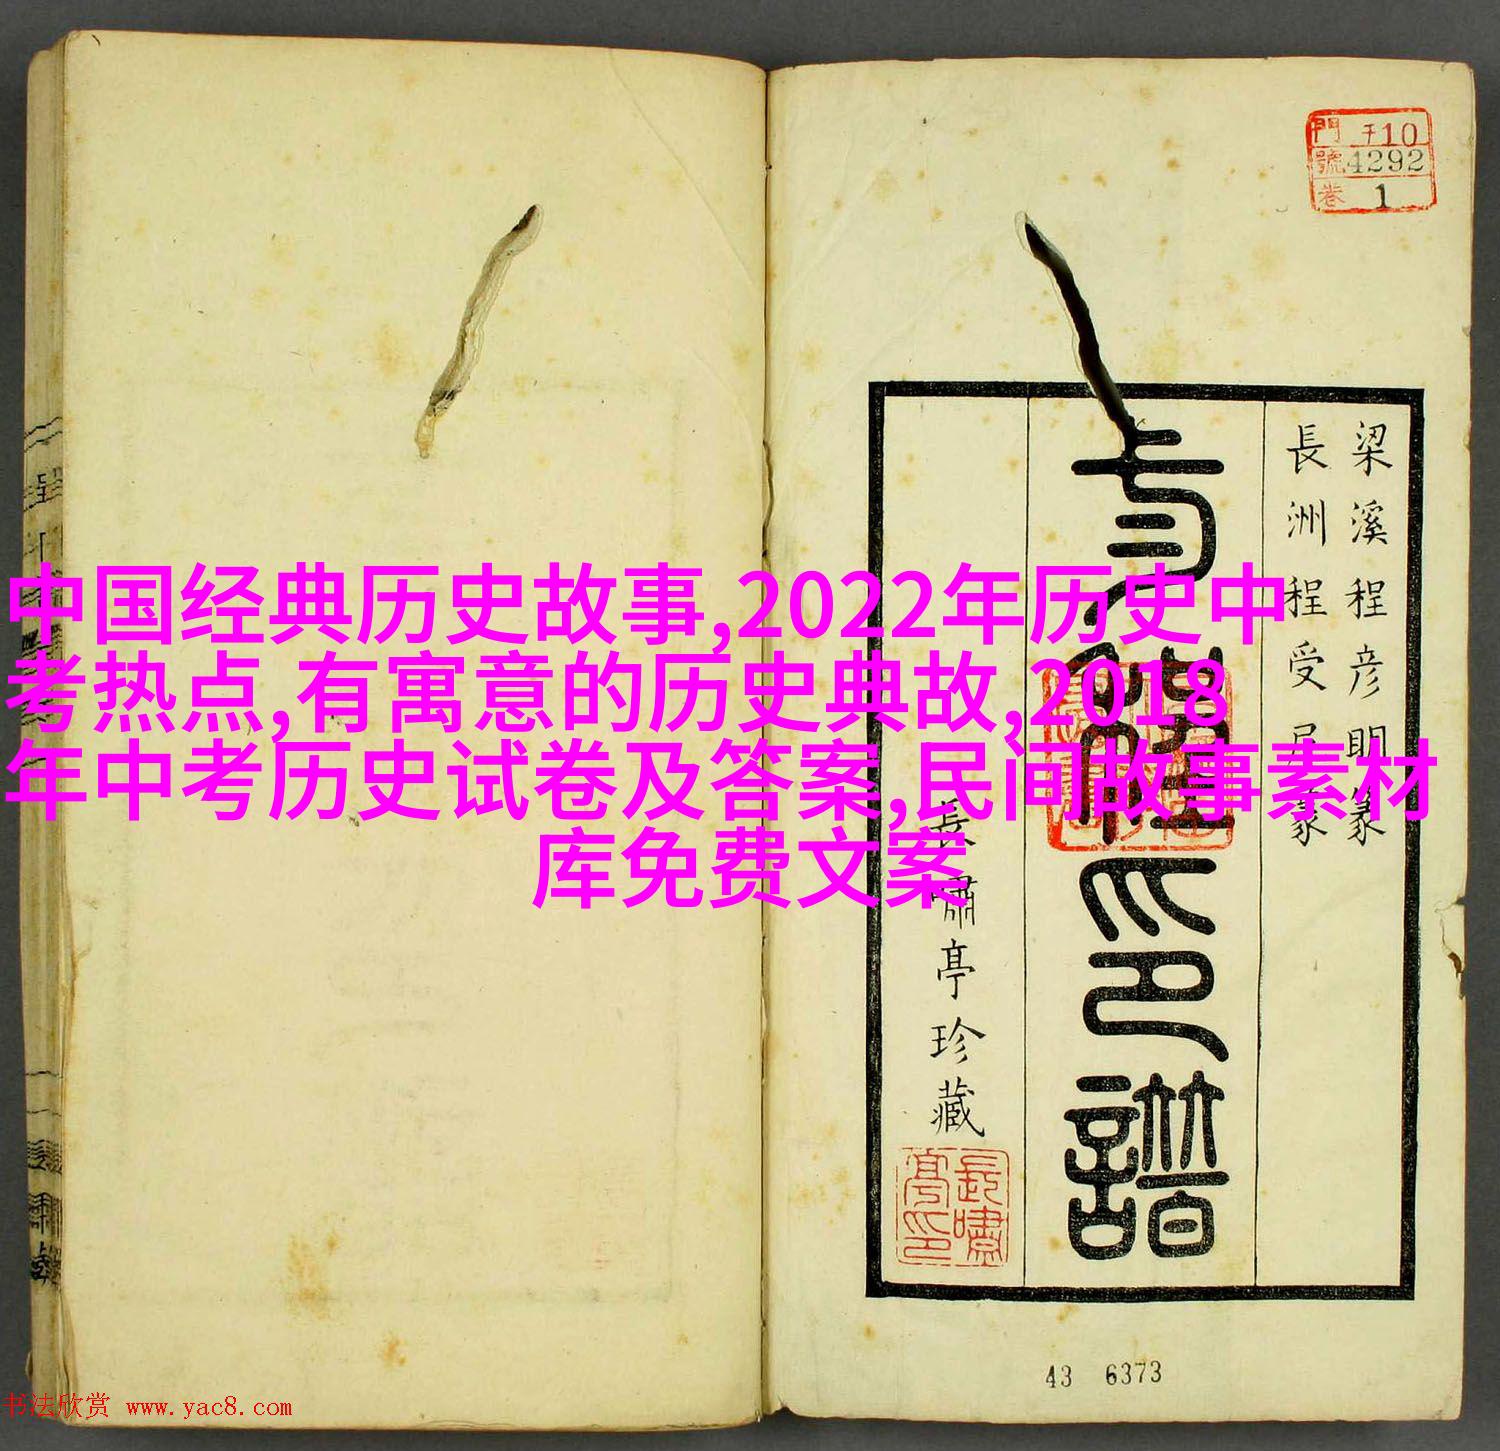 中国经典历史故事,2022年历史中
考热点,有寓意的历史典故,2018
年中考历史试卷及答案,民间故事素材
库免费文案
門 チ10
號 4292
卷 1
梁溪程彦明篆
長洲程受篆
印譜
長嘯亭珍藏
長嘯亭印
43 6373
书法欣赏 www.yac8.com